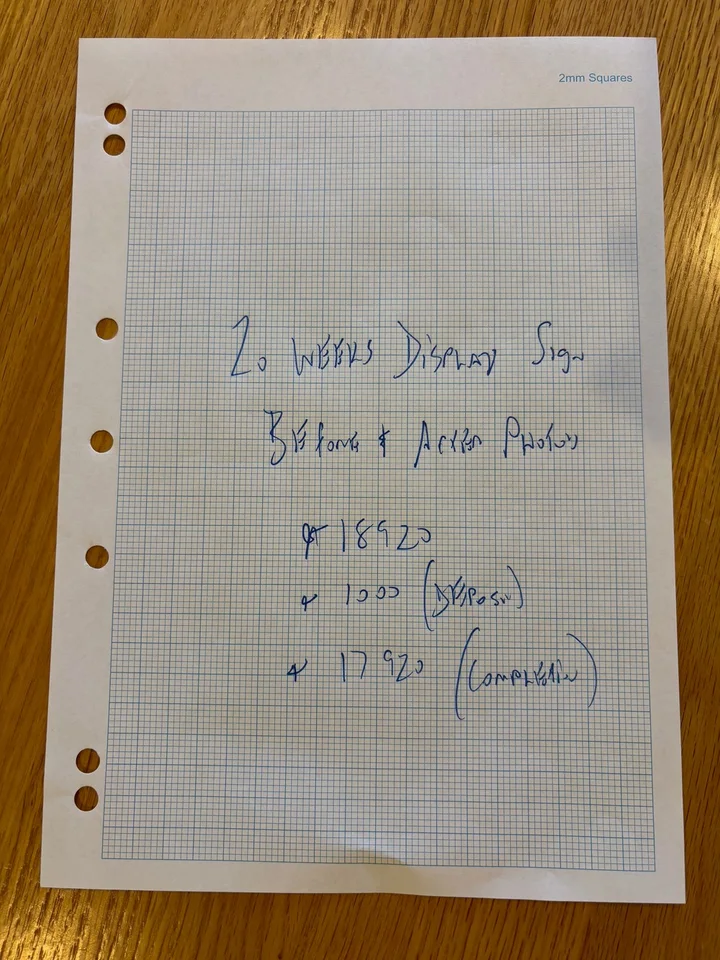 2mm Squares
20 WEEKS DISPLAY SIGN
BEFORE & AFTER PHOTOS
18920
1000 (DEPOSIT)
17920 (COMPLETION)